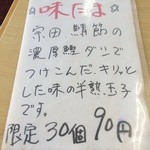 ☆味たま
宗田、鯖節の
濃厚鰹ダシで
つけこんだ、キリッと
した味の半熟玉子
です。
限定30個 90円